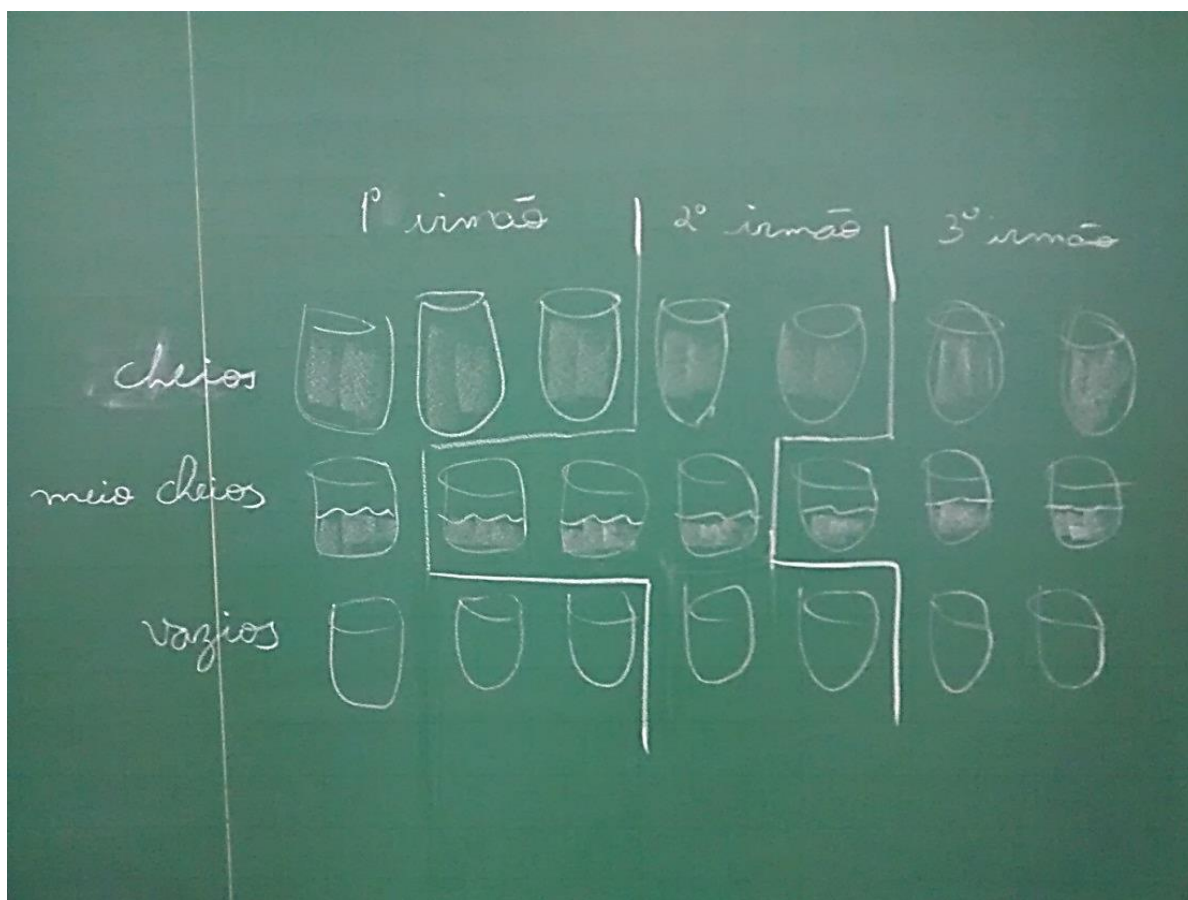 1º irmão 2º irmão 3º irmão
cheios
meio cheios
vazios